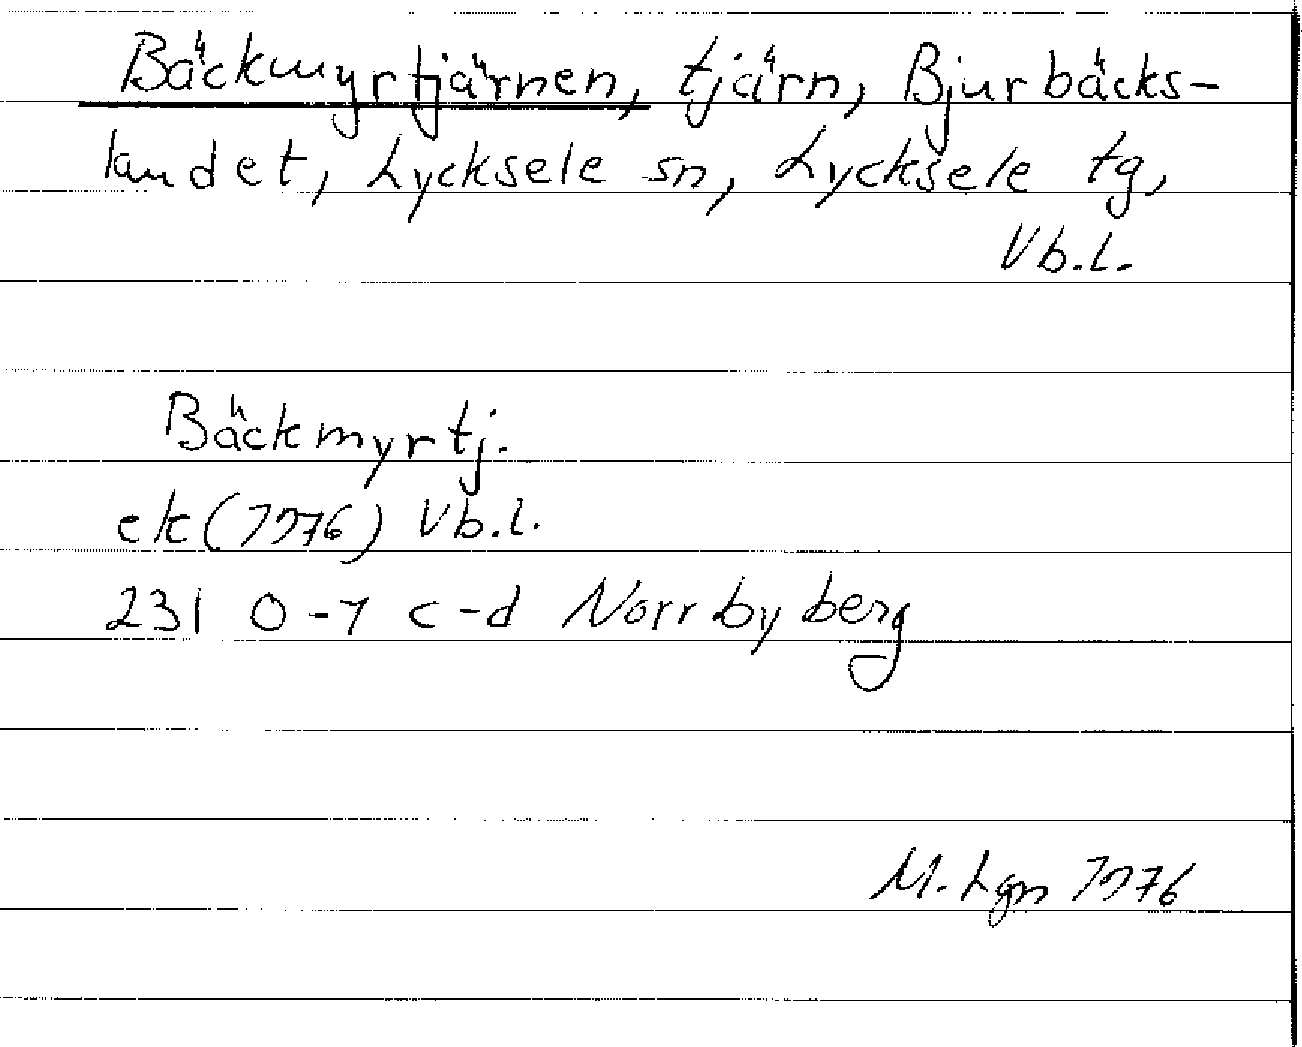 Bäckmyrtjärnen, tjärn, Bjurbäcks-
landet, Lycksele sn, Lycksele tg,
Vb.l.
Bäckmyrtj.
ek (1976) Vb.l.
231 0-1 c-d Norrbyberg
M. Lgn 1976